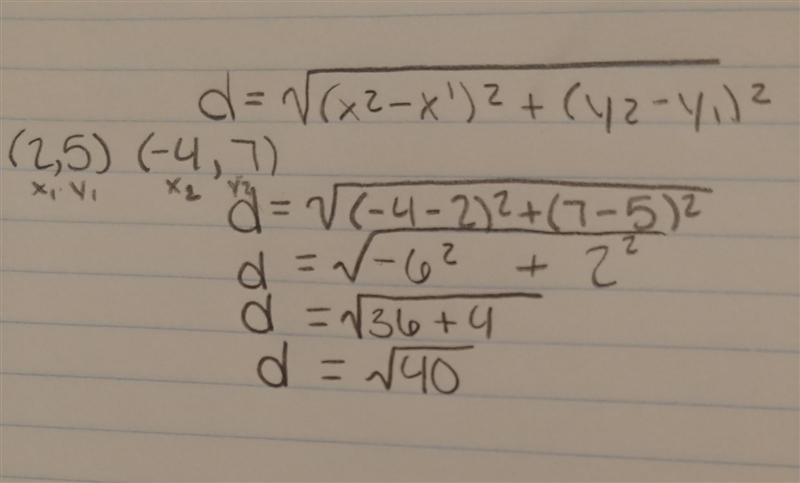 d = √(x2 - x')2 + (y2 - y₁)²
(2,5) (-4, 7)
x₁ y₁ x₂ y₂
d = √(-4 - 2)² + (7 - 5)²
d = √-6² + 2²
d = √36 + 4
d = √40